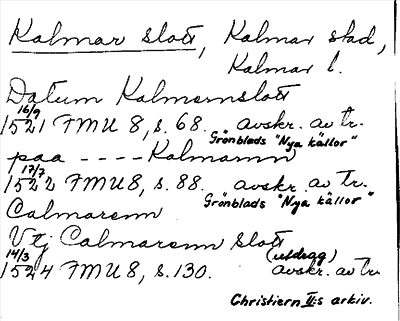 Kalmar slott, Kalmar stad,
Kalmar l.
Datum Kalmarnslott
16/9
1521 FMU 8, s. 68. avskr. av tr.
Grönblads "Nya källor"
paa - - - - Kalmarnn
17/7
1522 FMU 8, s. 88. avskr. av tr.
Grönblads "Nya källor"
Calmarenn
Vtj Calmarenn slott
14/3 (utdrag)
1524 FMU 8, s. 130. avskr. av tr.
Christiern II:s arkiv.